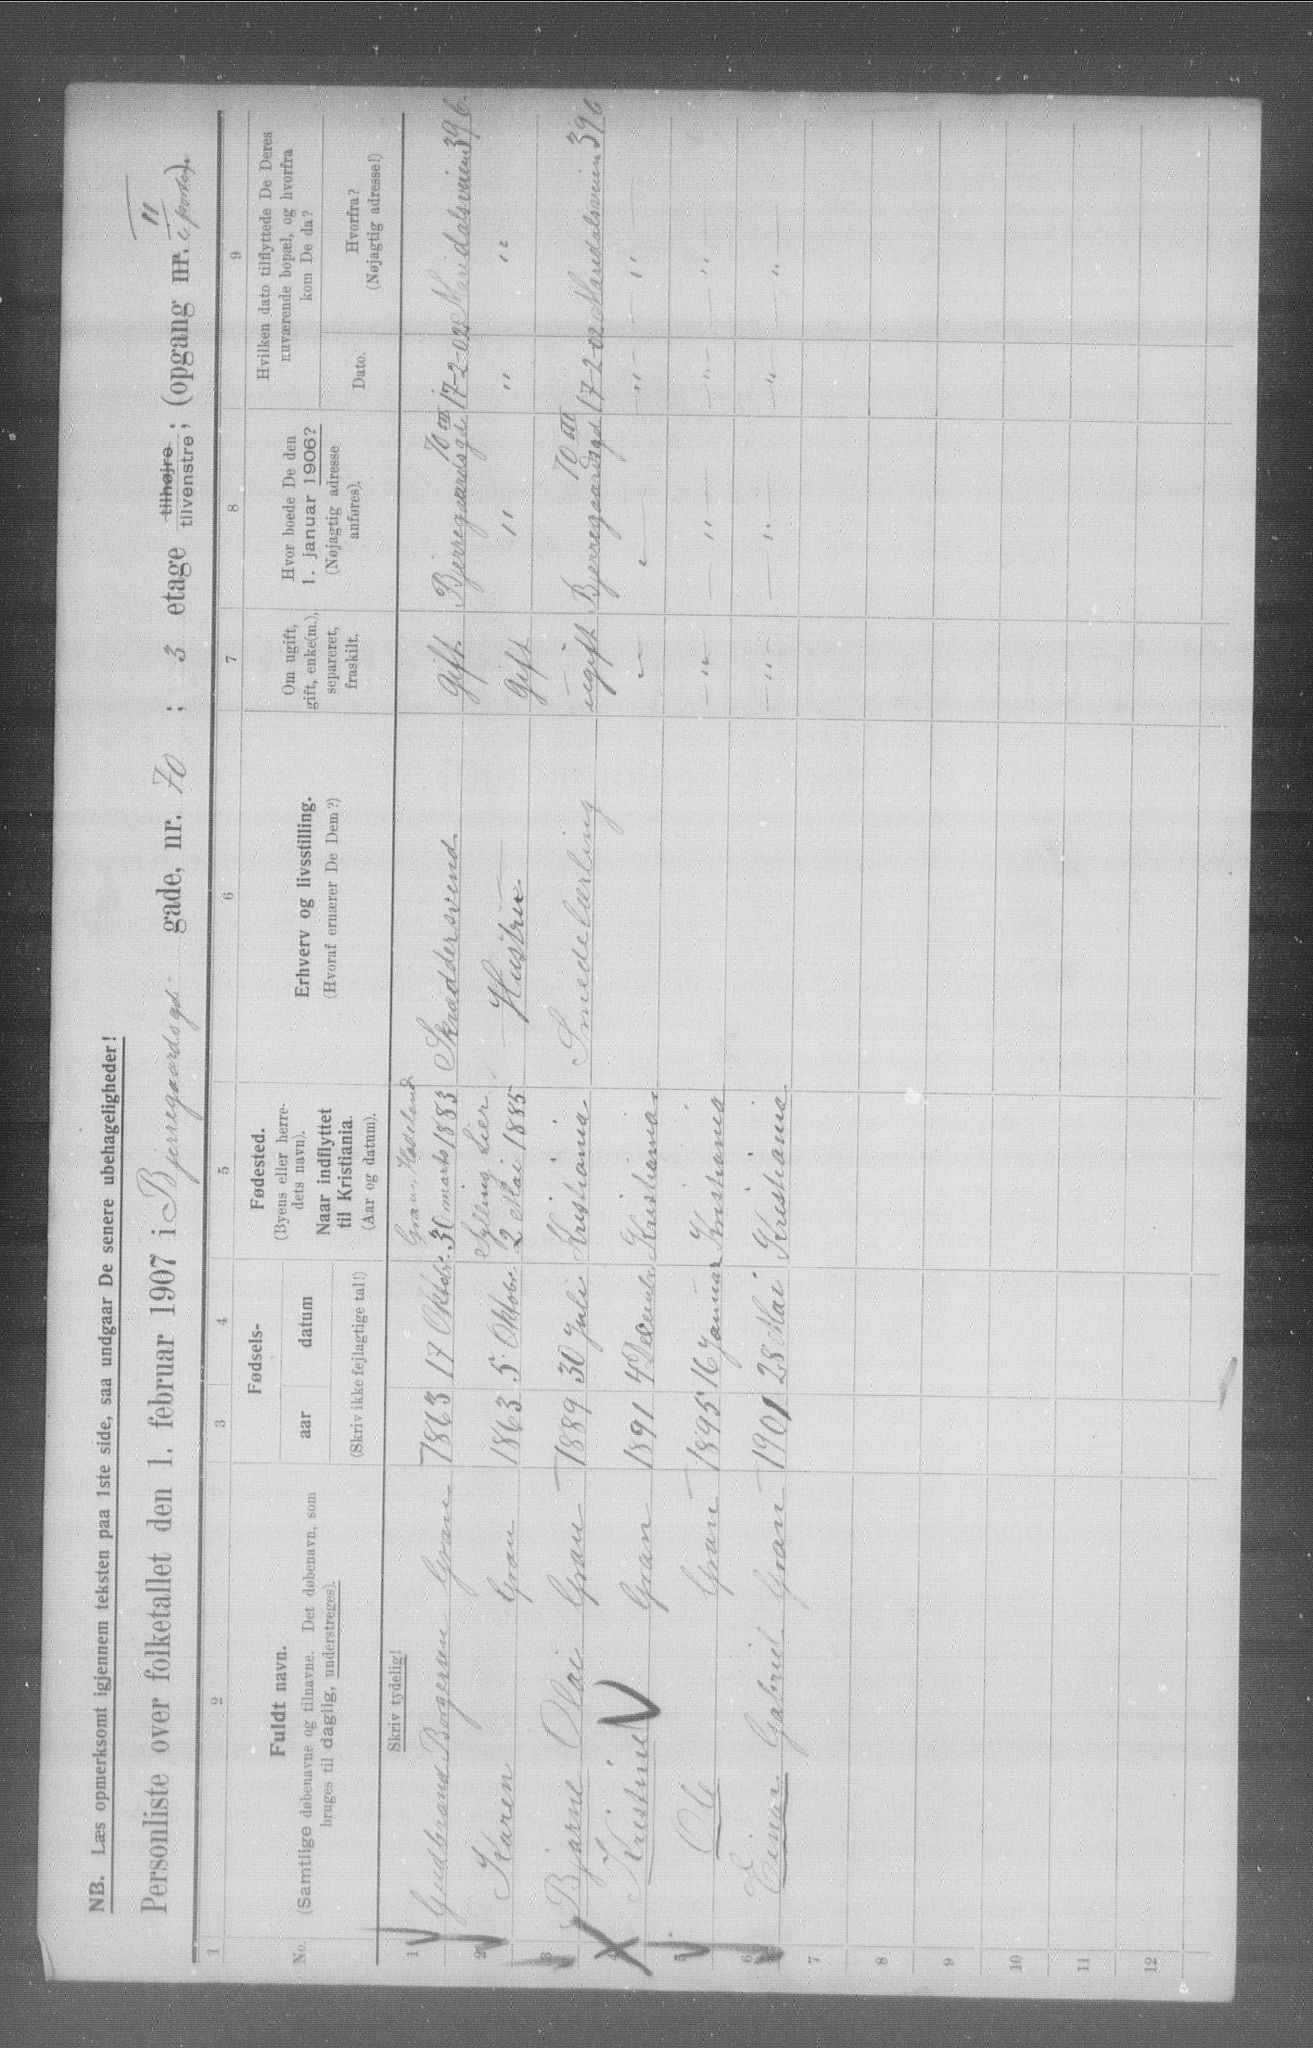 NB. Læs opmerksomt igjennem teksten paa 1ste side, saa undgaar De senere ubehageligheder!
Personliste over folketallet den 1. februar 1907 i Bjerregaardsgd. gade, nr. 70 ; 3 etage tilhøjre tilvenstre; (opgang nr. II).
1 2 3 4 5 6 7 8 9
No.
Fuldt navn.
(Samtlige døbenavne og tilnavne. Det døbenavn, som
bruges til daglig, understreges).
Fødsels-
aar datum
(Skriv ikke fejlagtige tal!)
Fødested.
(Byens eller herre-
dets navn).
Naar indflyttet
til Kristiania.
(Aar og datum).
Erhverv og livsstilling.
(Hvoraf ernærer De Dem?)
Om ugift,
gift, enke(m.),
separeret,
fraskilt.
Hvor boede De den
1. januar 1906?
(Nøjagtig adresse
anføres).
Hvilken dato tilflyttede De Deres
nuværende bopæl, og hvorfra
kom De da?
Dato.
Hvorfra?
(Nøjagtig adresse!)
Skriv tydelig!
1 Gudbrand Borgersen Gran 1863 17 Oktobr. Gran, Hadeland 30 marts 1883 Skræddersvend Gift Bjerregaardsgd 70 III 17-2-02 Maridalsveien 39 b.
2 Karen Gran 1863 5 Oktobr. Sylling Lier 2 Mai 1885 Hustru Gift " " "
3 Bjarne Olai Gran 1889 30 Juli Kristiania Smedelærling ugift Bjerregaardsgd 70 III 17-2-02 Maridalsveien 39 b
4 Kristine Gran 1891 4 Decembr. Kristiania " " " "
5 Ole Gran 1895 16 Januar Kristiania " " " "
6 Einar Gabriel Gran 1901 28 Mai Kristiania " " " "
7
8
9
10
11
12